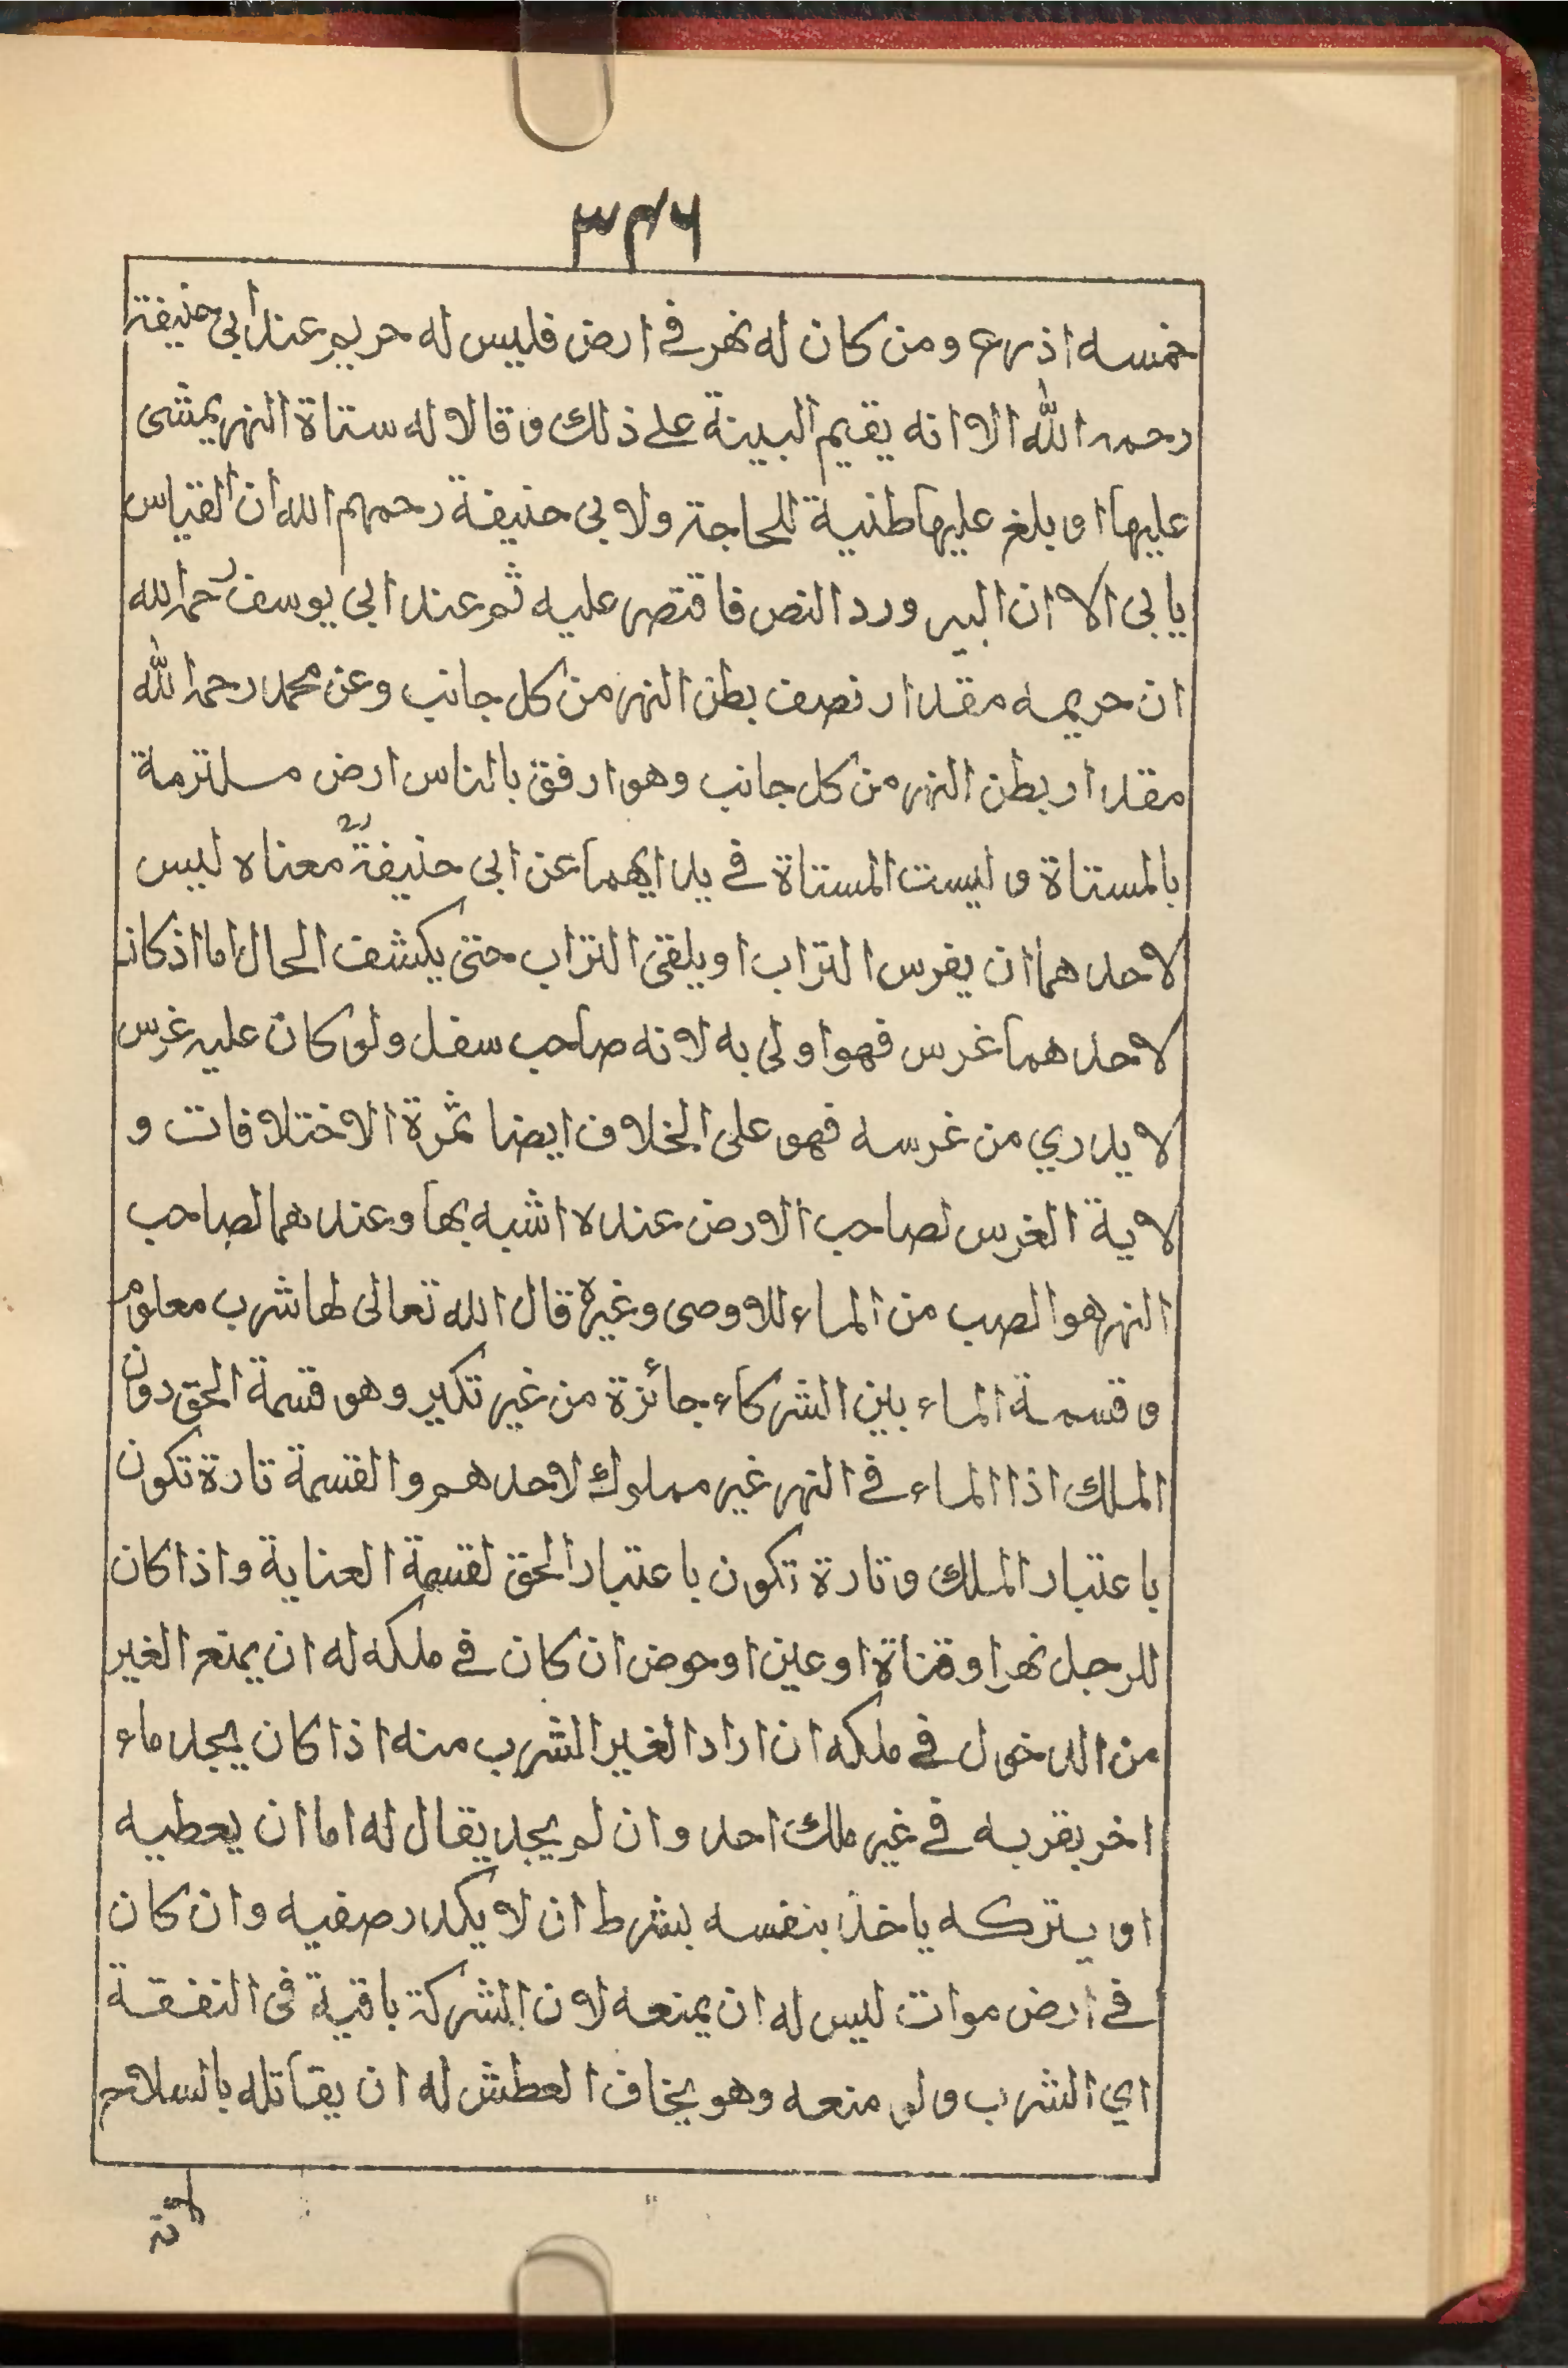 ٣٣٦
خمسه اذرع ومن كان له نهر في ارض فليس له حريم عند ابي حنيفة
رحمه الله الا انه يقيم البينة على ذلك و قالا له ستناة النهر يمشى
عليها او يلغ عليها طنية للحاجة ولابى حنيفة رحمهم الله ان القياس
يابى الا ان البير ورد النص فاقتصر عليه ثم عند ابي يوسف رحمه الله
ان حريمه مقدار نصف بطن النهر من كل جانب وعن محمد رحمه الله
مقدار بطن النهر من كل جانب وهو ارفق بالناس ارض مسلتزمة
بالمستناة و ليست المستناة في يد ايهما عن ابى حنيفة رح معناه ليس
لاحدهما ان يفرس التراب او يلقى التراب حتى يكشف الحال اما اذ كان
لاحدهما غرس فهوا ولى به لانه صاحب سفل ولو كان عليه غرس
لا يدري من غرسه فهو على الخلاف ايضا ثمرة الاختلافات و
لاية الغرس لصاحب الارض عنده اشبه بها وعندهما لصاحب
النهر هو الصب من الماء للاوصى وغيره قال الله تعالى لها شرب معلوم
و قسمة الماء بين الشركاء جائزة من غير تكير وهو قسمة الحق دون
الملك اذا الماء في النهر غير مملوك لاحدهم والقسمة تارة تكون
باعتبار الملك و تارة تكون باعتبار الحق لقسمة العناية واذا كان
للرجل نهرا و قناة او عين او حوض ان كان في ملكه له ان يمنع الغير
من الدخول في ملكه ان اراد الغير الشرب منه اذا كان يجد ماء
اخر بقربه في غير ملك احد وان لم يجد يقال له اما ان يعطيه
او يتركه ياخذ بنفسه بشرط ان لا يكدر صفيه وان كان
في ارض موات ليس له ان يمنعه لان الشركة باقية فى النفقة
اي الشرب و لو منعه وهو يخاف العطش له ان يقاتله بالسلاح